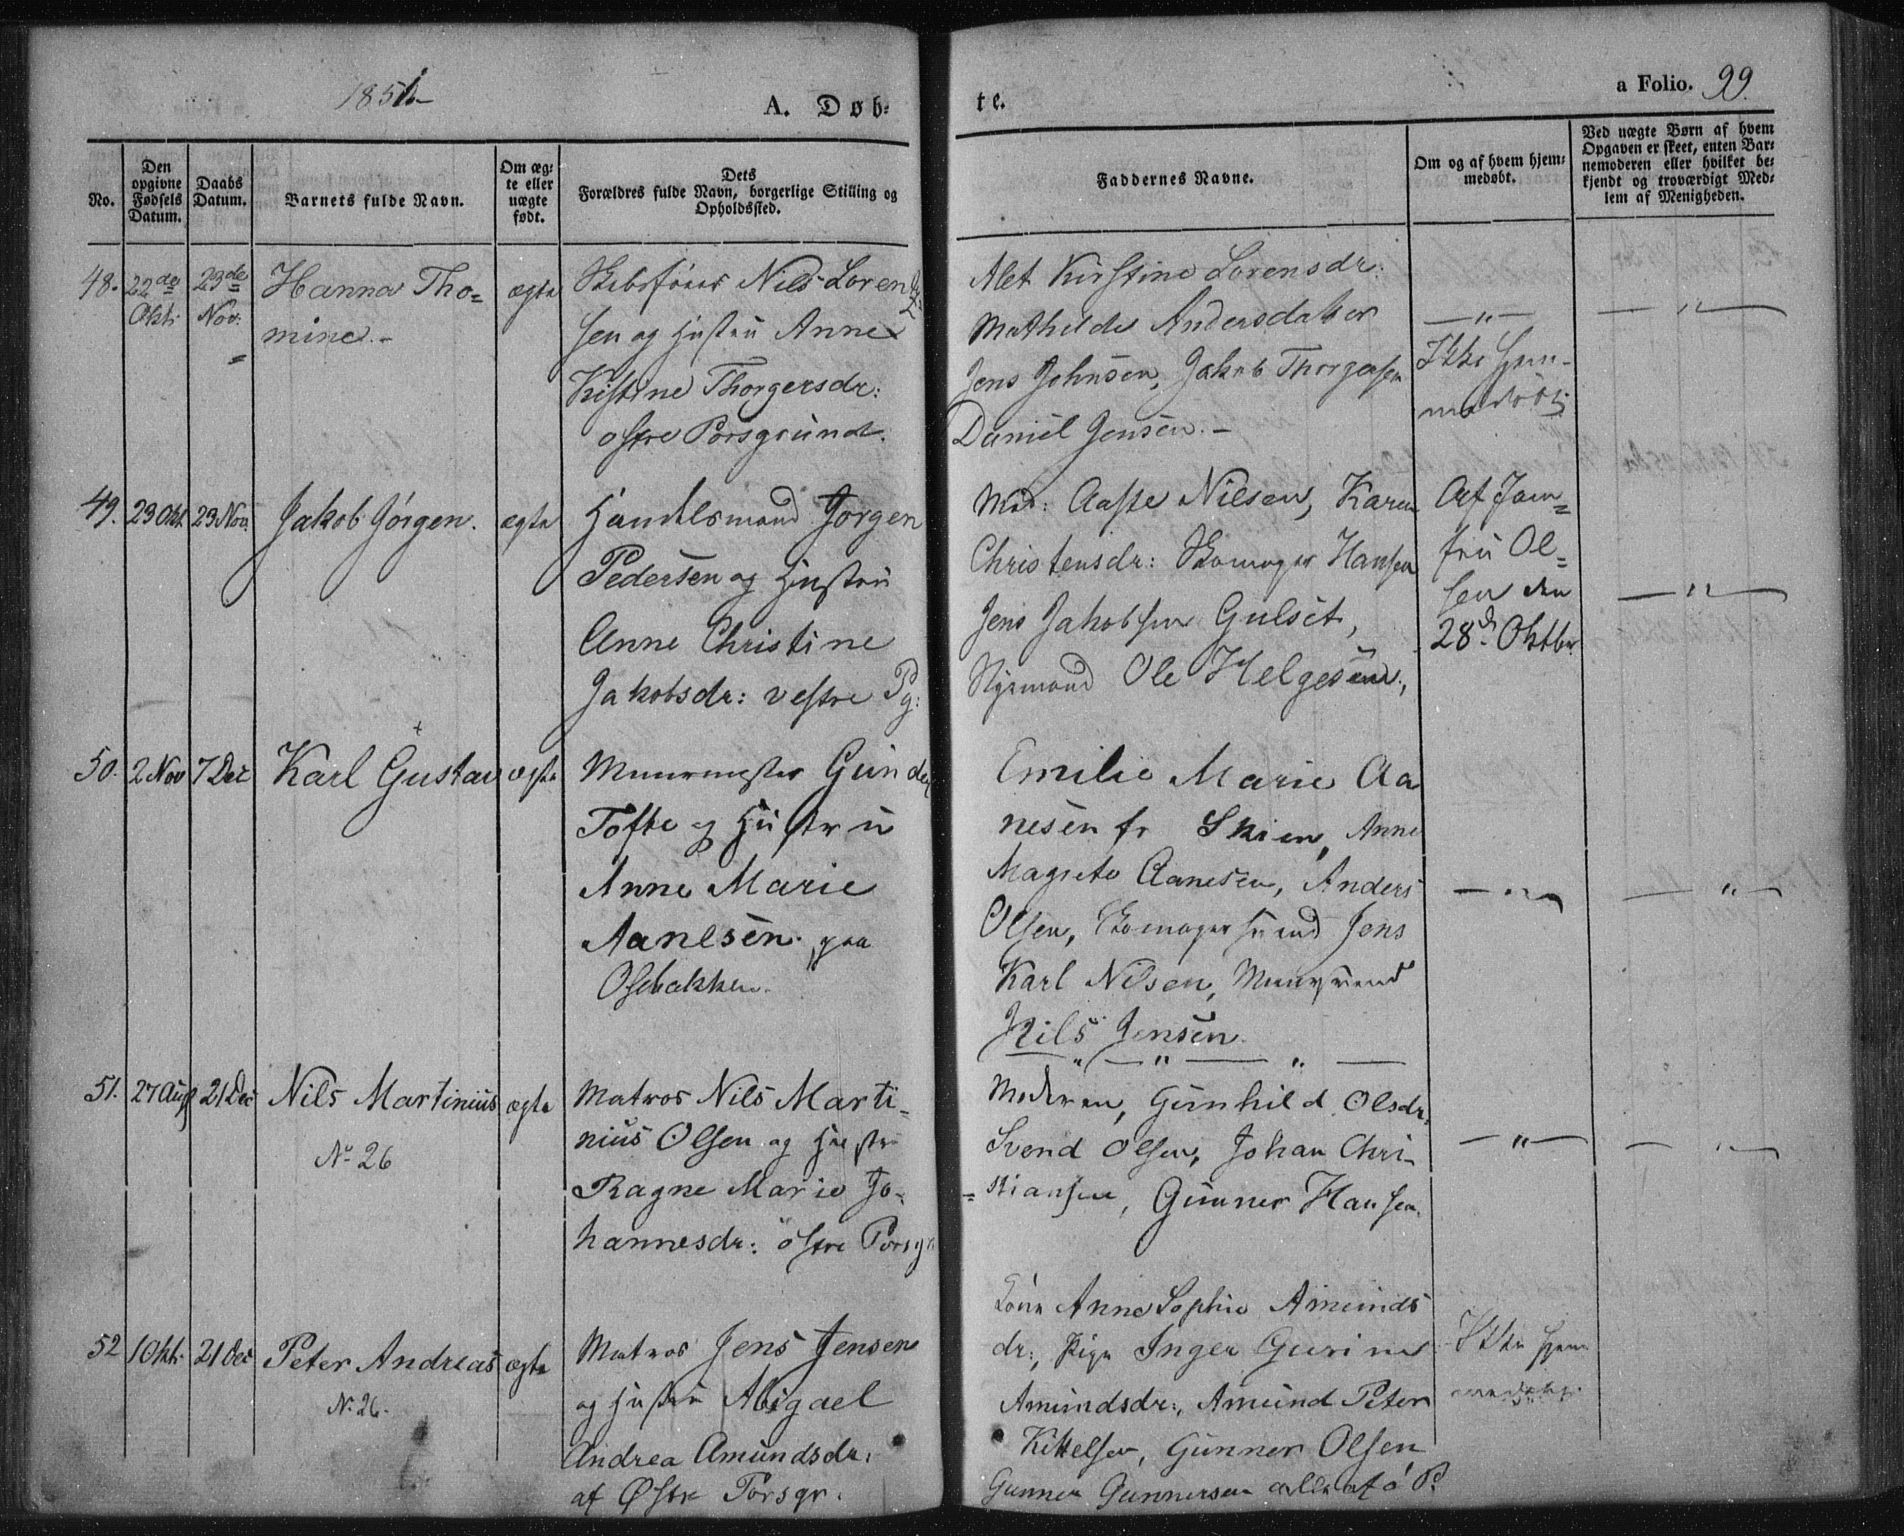 1851
A. Døb-
te.
a Folio. 99.
No.
Den opgivne Fødsels Datum.
Daabs Datum.
Barnets fulde Navn.
Om ægte eller uægte født.
Dets Forældres fulde Navn, borgerlige Stilling og Opholdssted.
Faddernes Navne.
Om og af hvem hjemmedøbt.
Ved uægte Børn af hvem Opgaven er skeet, enten Barnemoderen eller hvilket bekjendt og troværdigt Medlem af Menigheden.
48.
22de Okt.
23de Nov.
Hanna Tho=
mine.-
ægte
Skibsfører Nils Loren
sen og Hustru Anne
Kistine Thorgersdr:
østre Porsgrund.
Alet Kirstine Lorensdr:
Mathilde Andersdatter
Jens Johnsen, Jakob Thorgersen
Daniel Jensen.-
Ikke hjem-
medøbt.
49.
29 Okt.
23 Nov.
Jakob Jörgen.
ægte
Handelsmand Jörgen
Pedersen og Hustru
Anne Christine
Jakobsdr: vestre Pg:
Mad: Aaste Nilsen, Karen
Christensdr: Skomager Hansen
Jens Jakobsen Gulset,
Styrmand Ole Helgesen.,
Af Jom=
fru Ol=
sen den
28de Oktbr
50.
2 Nov
7 Dec
Karl Gustav
ægte
Muurmester Gunder
Tofte og Hustru
Anne Marie
Aanesen. paa
Osebakken.
Emilie Marie Aa
nesen fr Skien, Anne
Magrete Aanesen, Anders
Olsen, Skomagersvend Jens
Karl Nilsen, Muursvend
Nils Jensen.
51.
27 Aug
21 Dec
Nils Martinius
No 26
ægte
Matros Nils Marti-
nius Olsen og Hustru
Ragne Marie Jo-
hannesdr: østre Porsgr
Moderen, Gunhild Olsdr.
Svend Olsen, Johan Chri-
=stiansen, Gunner Hansen.
52
1 Okt.
21 Dec
Peter Andreas
N. 26.
ægte
Matros Jens Jensen
og Hustru Abigael
Andrea Amundsdr.
af Østre Porsgr.
Kone Anne Sophie Amunds
dr:, Pige Inger Gurine
Amundsdr:, Amund Peter
Kittelsen, Gunner Olsen
Gunner Gunnersen alle af ö P.
Ikke hjem
medøbt.